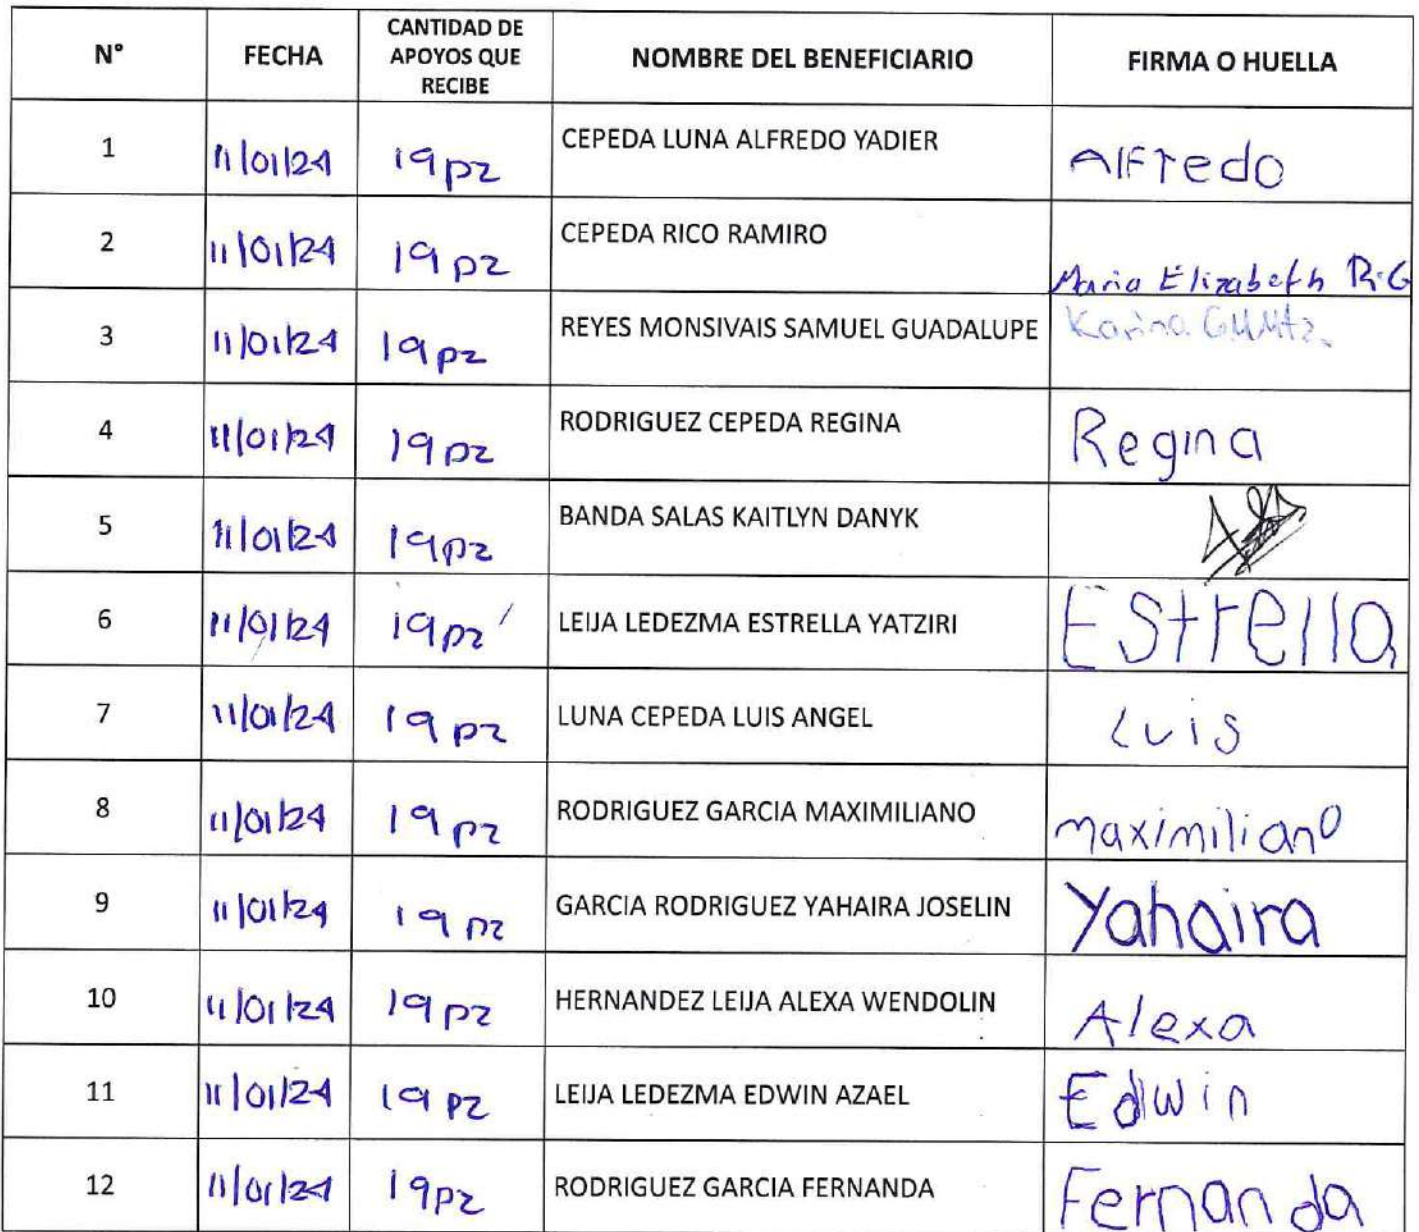 N° FECHA CANTIDAD DE APOYOS QUE RECIBE NOMBRE DEL BENEFICIARIO FIRMA O HUELLA
1 11/01/24 19pz CEPEDA LUNA ALFREDO YADIER Alfredo
2 11/01/24 19pz CEPEDA RICO RAMIRO Maria Elizabeth R.G
3 11/01/24 19pz REYES MONSIVAIS SAMUEL GUADALUPE Karina
4 11/01/24 19pz RODRIGUEZ CEPEDA REGINA Regina
5 11/01/24 19pz BANDA SALAS KAITLYN DANYK
6 11/01/24 19pz LEIJA LEDEZMA ESTRELLA YATZIRI Estrella
7 11/01/24 19pz LUNA CEPEDA LUIS ANGEL Luis
8 11/01/24 19pz RODRIGUEZ GARCIA MAXIMILIANO maximiliano
9 11/01/24 19pz GARCIA RODRIGUEZ YAHAIRA JOSELIN Yahaira
10 11/01/24 19pz HERNANDEZ LEIJA ALEXA WENDOLIN Alexa
11 11/01/24 19pz LEIJA LEDEZMA EDWIN AZAEL Edwin
12 11/01/24 19pz RODRIGUEZ GARCIA FERNANDA Fernanda